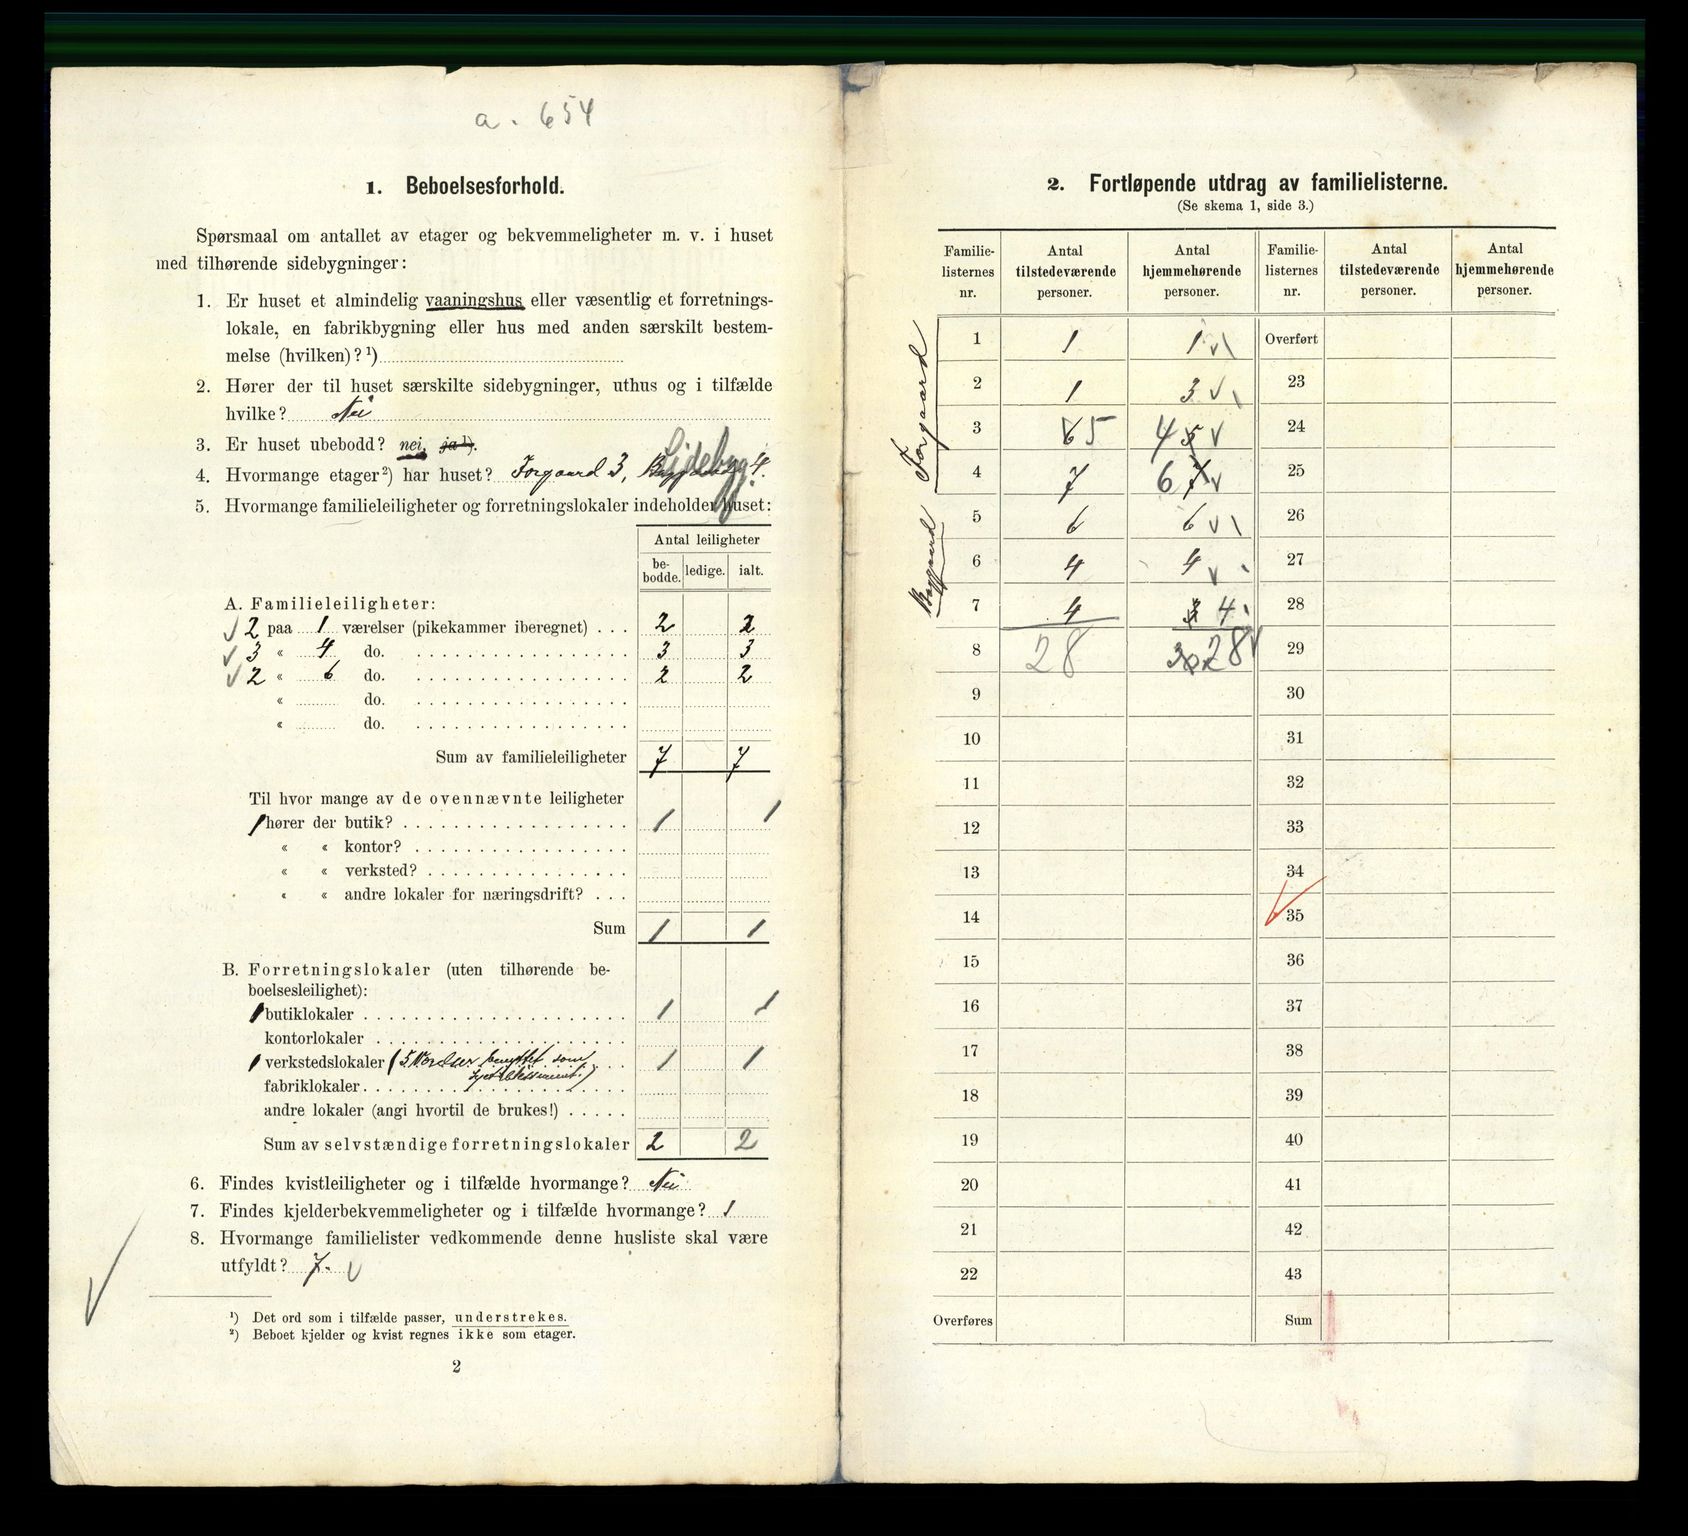 a. 654
1. Beboelsesforhold.
Spørsmaal om antallet av etager og bekvemmeligheter m. v. i huset
med tilhørende sidebygninger:
1. Er huset et almindelig vaaningshus eller væsentlig et forretnings-
lokale, en fabrikbygning eller hus med anden særskilt bestem-
melse (hvilken)?¹)
2. Hører der til huset særskilte sidebygninger, uthus og i tilfælde
hvilke? Nei
3. Er huset ubebodd? nei, ja¹).
4. Hvormange etager²) har huset? Forgaard 3, Baggaard 4. Sidebyg
5. Hvormange familieleiligheter og forretningslokaler indeholder huset:
Antal leiligheter
be-bodde. ledige. ialt.
A. Familieleiligheter:
√ 2 paa 1 værelser (pikekammer iberegnet) . . . 2 2
√ 3 « 4 do. 3 3
√ 2 « 6 do. 2 2
« do.
« do.
Sum av familieleiligheter 7 7
Til hvor mange av de ovennævnte leiligheter
1 hører der butik? 1 1
« « kontor?
« « verksted?
« « andre lokaler for næringsdrift? . . .
Sum 1 1
B. Forretningslokaler (uten tilhørende be-
boelsesleilighet):
1 butiklokaler 1 1
kontorlokaler
1 verkstedslokaler (5 Værelser benyttet som 1 1
fabriklokaler
andre lokaler (angi hvortil de brukes!)
Sum av selvstændige forretningslokaler 2 2
6. Findes kvistleiligheter og i tilfælde hvormange? Nei
7. Findes kjelderbekvemmeligheter og i tilfælde hvormange? 1
8. Hvormange familielister vedkommende denne husliste skal være
utfyldt? 7. √
¹) Det ord som i tilfælde passer, understrekes.
²) Beboet kjelder og kvist regnes ikke som etager.
2
2. Fortløpende utdrag av familielisterne.
(Se skema 1, side 3.)
Familie-listernes nr. Antal tilstedeværende personer. Antal hjemmehørende personer. Familie-listernes nr. Antal tilstedeværende personer. Antal hjemmehørende personer.
Forgaard
Baggaard
1 1 1 √ Overført
2 1 3 √ 23
3 6 5 4 5 √ 24
4 7 6 7 √ 25
5 6 6 √ 26
6 4 4 √ 27
7 4 3 4 28
8 28 30 28 √ 29
9 30
10 31
11 32
12 33
13 34
14 35
15 36
16 37
17 38
18 39
19 40
20 41
21 42
22 43
Overføres Sum